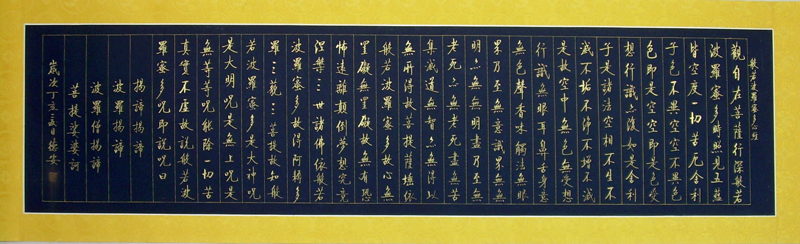 般若波羅蜜多心經
觀自在菩薩行深般若
波羅蜜多時照見五蘊
皆空度一切苦厄舍利
子色不異空空不異色
色即是空空即是色受
想行識亦復如是舍利
子是諸法空相不生不
滅不垢不淨不增不減
是故空中無色無受想
行識無眼耳鼻舌身意
無色聲香味觸法無眼
界乃至無意識界無無
明亦無無明盡乃至無
老死亦無老死盡無苦
集滅道無智亦無得以
無所得故菩提薩埵依
般若波羅蜜多故心無
罣礙無罣礙故無有恐
怖遠離顛倒夢想究竟
涅槃三世諸佛依般若
波羅蜜多故得阿耨多
羅三藐三菩提故知般
若波羅蜜多是大神咒
是大明咒是無上咒是
無等等咒能除一切苦
真實不虛故說般若波
羅蜜多咒即說咒曰
揭諦揭諦
波羅揭諦
波羅僧揭諦
菩提娑婆訶
歲次丁亥夏日德安